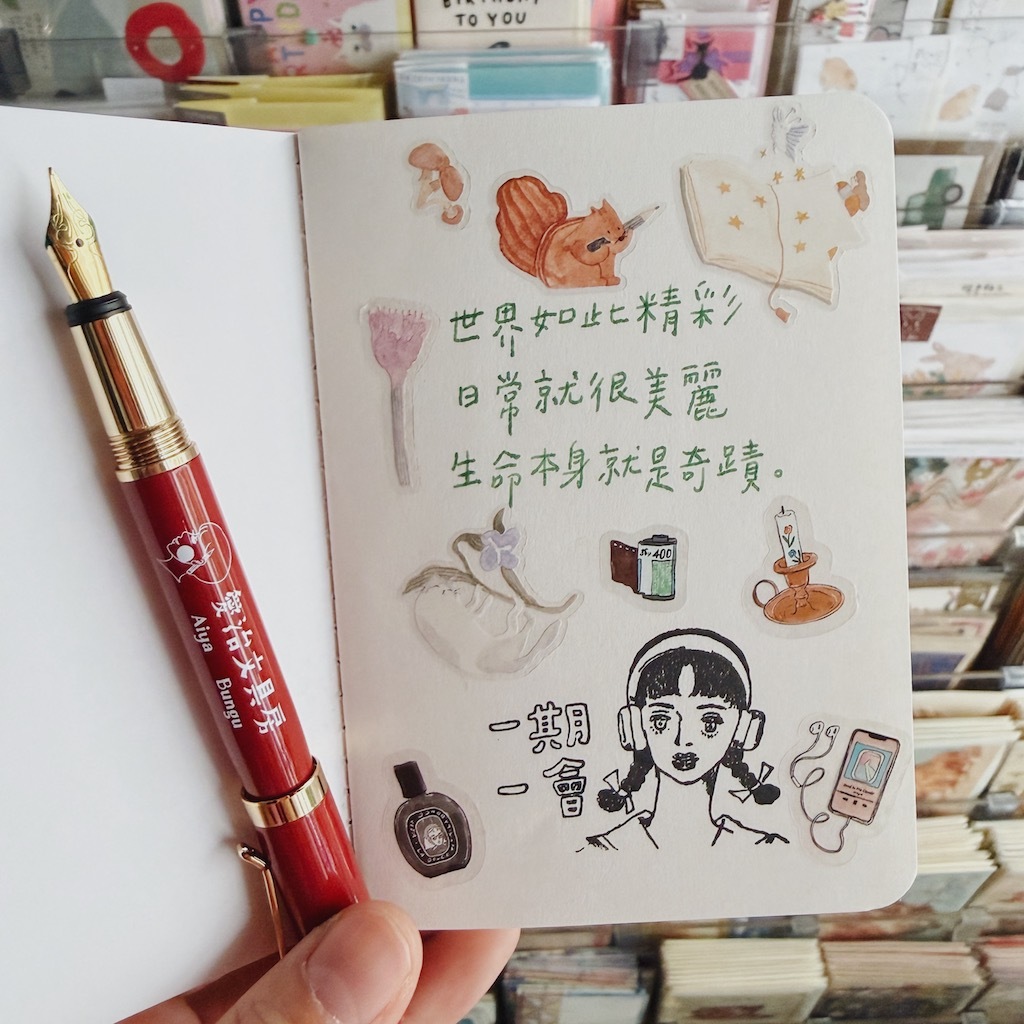 BIRTHDAY
TO YOU
世界如此精彩
日常就很美麗
生命本身就是奇蹟。
400
一期
一會
愛治文具房
Aiya Bungu